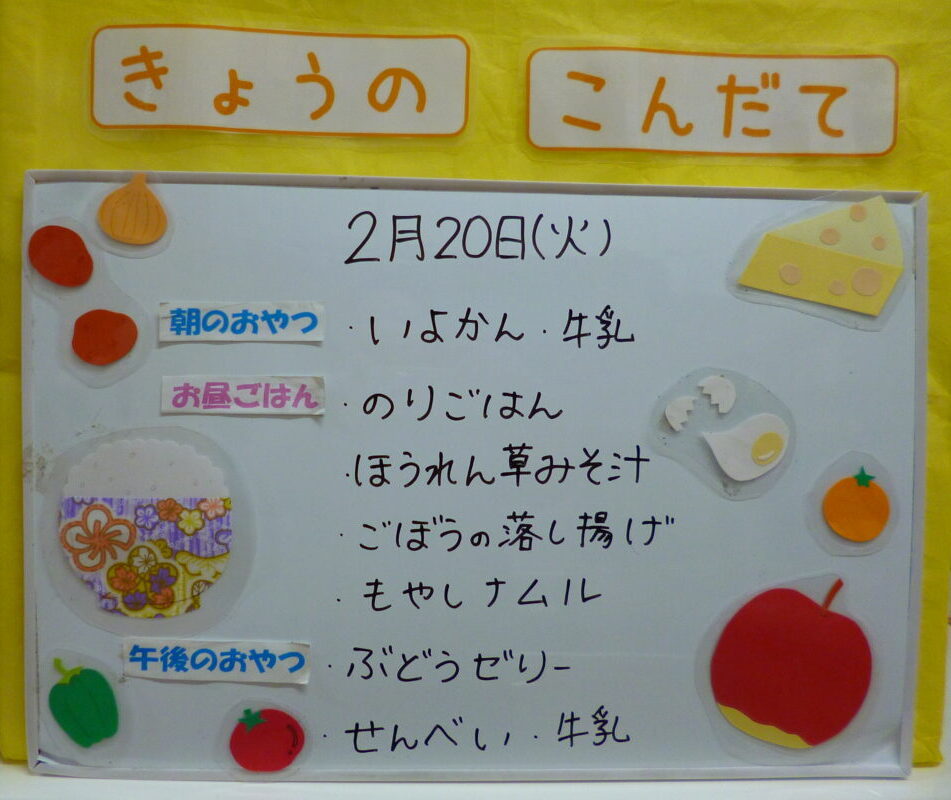 きょうの こんだて
2月20日(火)
朝のおやつ ・いよかん・牛乳
お昼ごはん ・のりごはん
・ほうれん草みそ汁
・ごぼうの落し揚げ
・もやしナムル
午後のおやつ ・ぶどうゼリー
・せんべい・牛乳